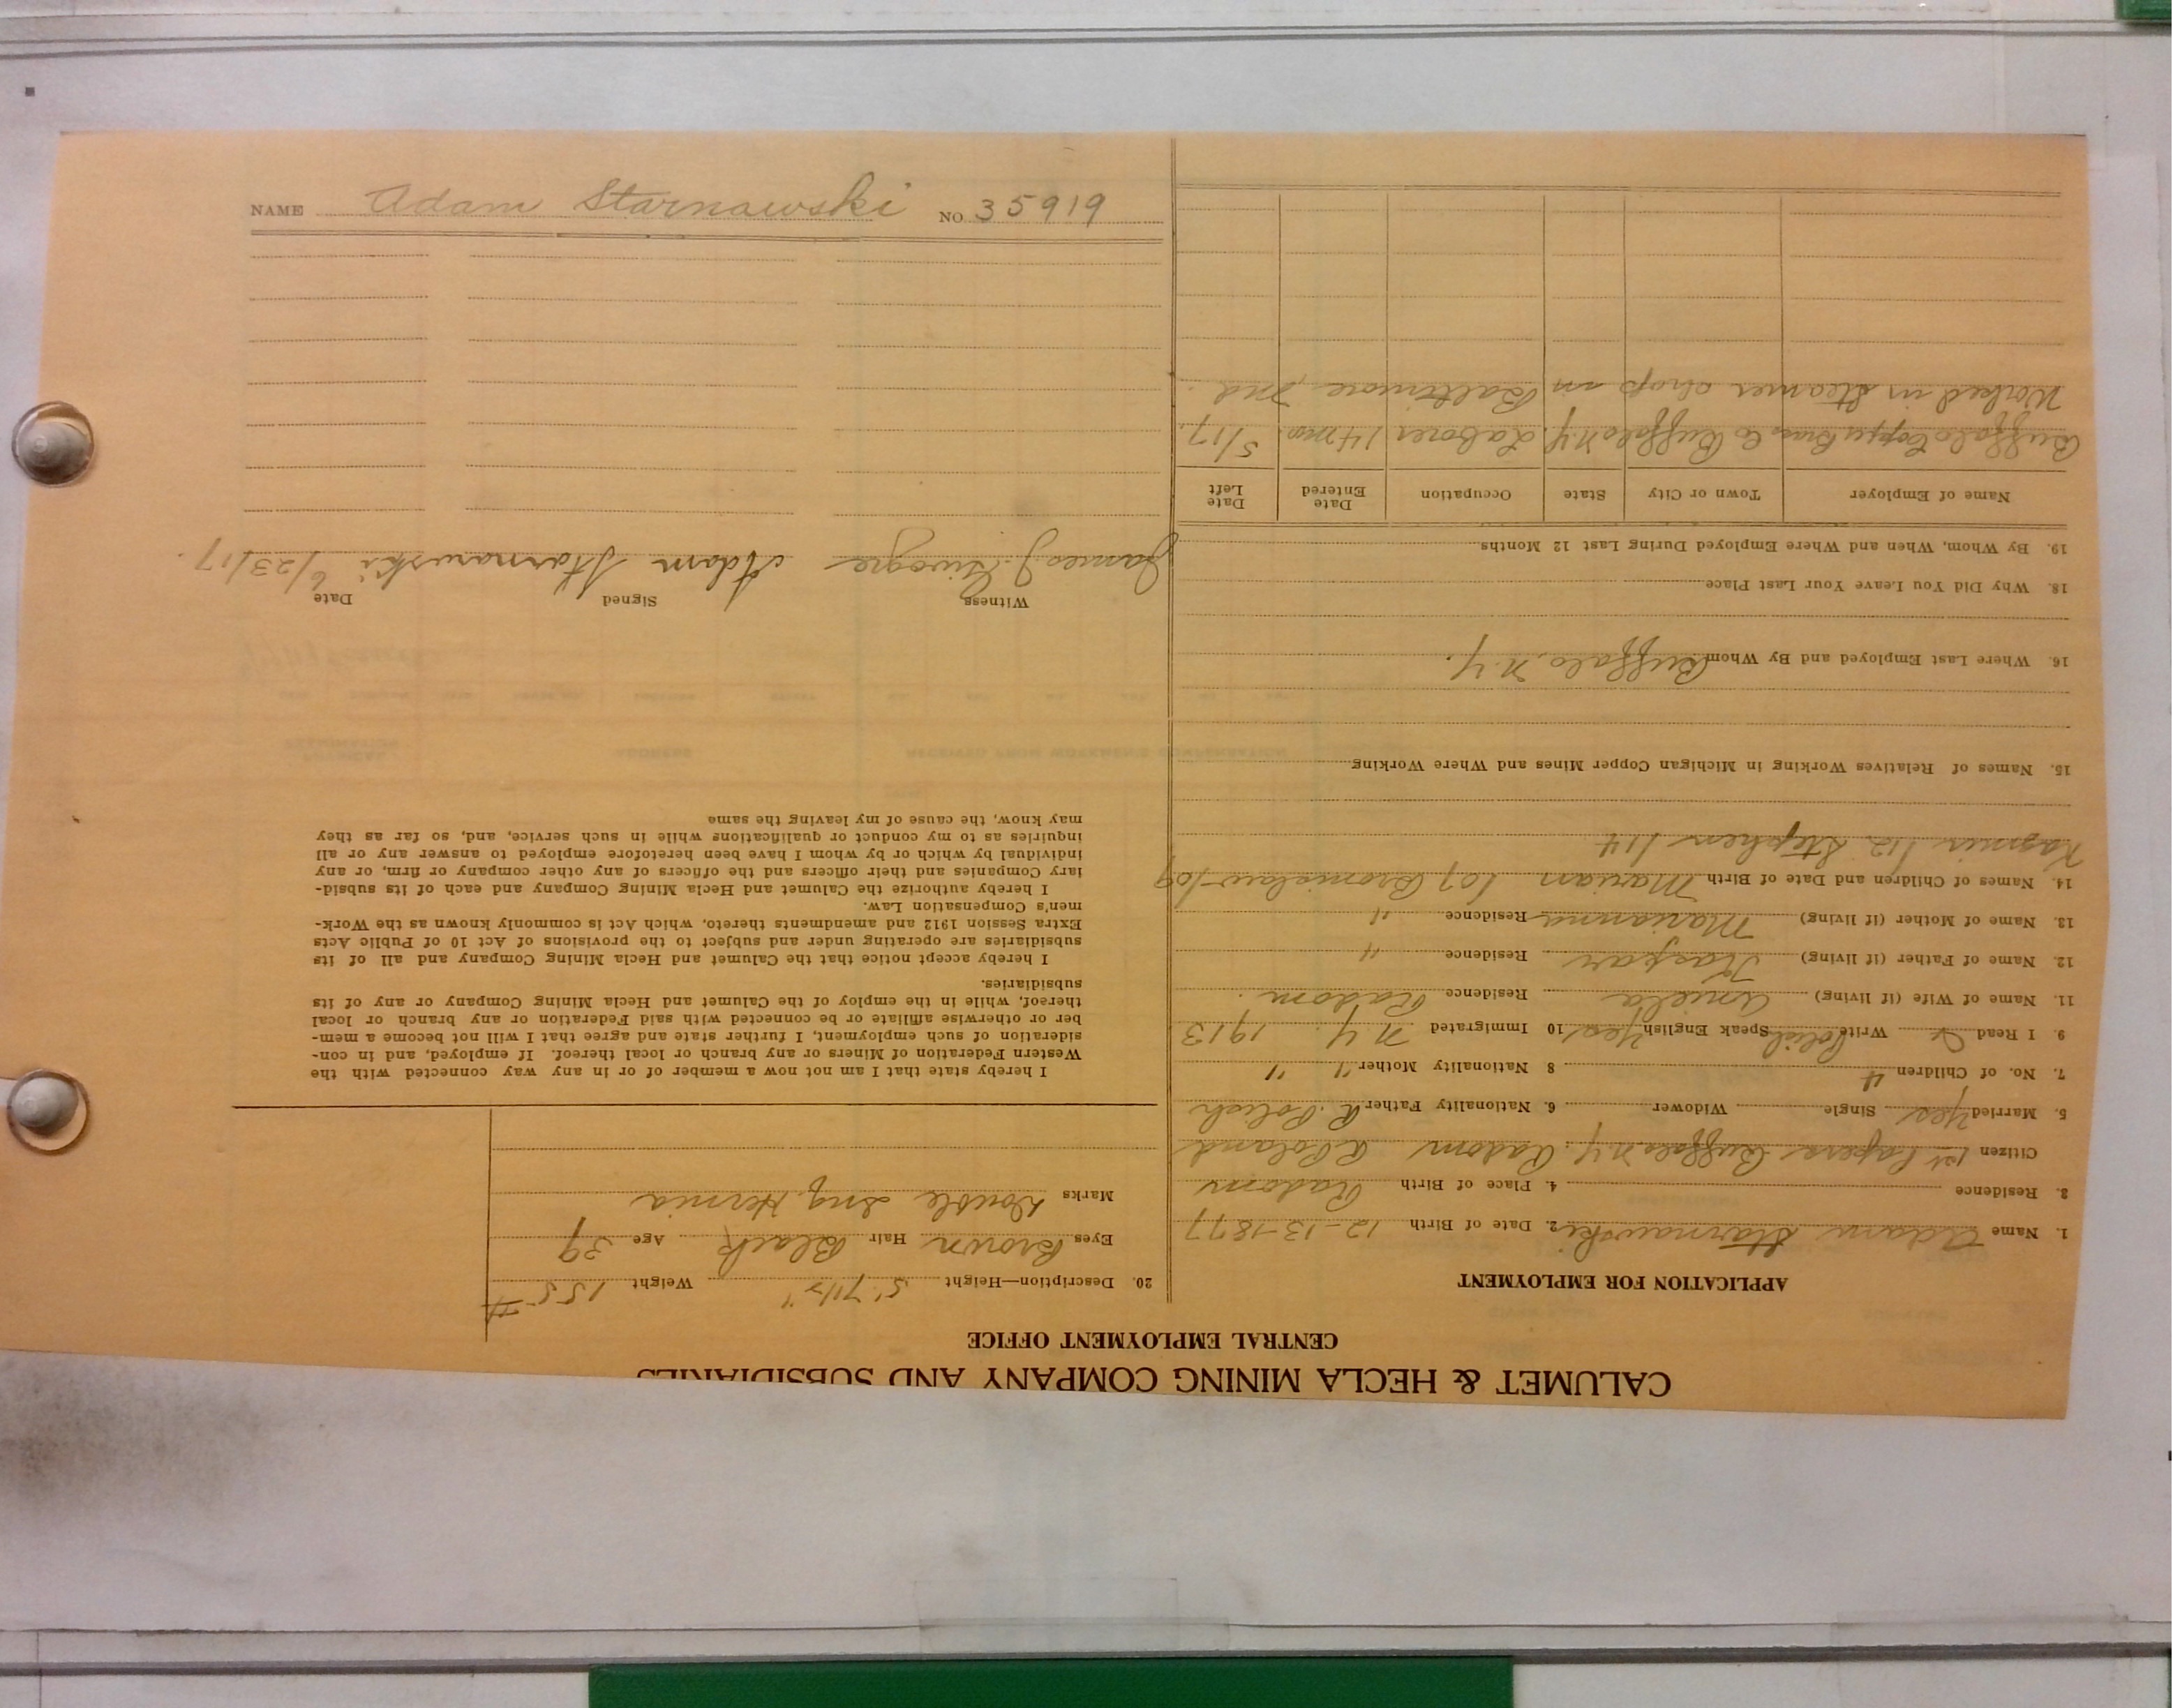 NAME Adam Starnawski NO. 35919
CALUMET & HECLA MINING COMPANY AND SUBSIDIARIES
CENTRAL EMPLOYMENT OFFICE
APPLICATION FOR EMPLOYMENT
1. Name Adam Starnawski 2. Date of Birth 12-13-1877
3. Residence 4. Place of Birth Radom
Citizen 1st Papers Buffalo N.Y. Radom R Poland
5. Married Yes Single Widower 6. Nationality Father R. Polish
7. No. of Children 4 8 Nationality Mother " "
9. I Read Write Polish Speak English Yes 10 Immigrated N.Y. 1913
11. Name of Wife (if living) Aniela Residence Radom.
12. Name of Father (if living) Kaspar Residence "
13. Name of Mother (if living) Marianna Residence "
14. Names of Children and Date of Birth Marian /07 Bronislaw /09
Kasmir /12 Stephen /14
15. Names of Relatives Working in Michigan Copper Mines and Where Working
16. Where Last Employed and By Whom Buffalo, N.Y.
18. Why Did You Leave Your Last Place
19. By Whom, When and Where Employed During Last 12 Months
Name of Employer Town or City State Occupation Date Entered Date Left
Buffalo Copper Brass Co Buffalo N.Y. Laborer 14 mo. 5/17
Worked in steamer shop in Baltimore, Md.
20. Description—Height 5' 7 1/2" Weight 155 #
Eyes Brown Hair Black Age 39
Marks Double Ing Hernia
I hereby state that I am not now a member of or in any way connected with the
Western Federation of Miners or any branch or local thereof. If employed, and in con-
sideration of such employment, I further state and agree that I will not become a mem-
ber or otherwise affiliate or be connected with said Federation or any branch or local
thereof, while in the employ of the Calumet and Hecla Mining Company or any of its
subsidiaries.
I hereby accept notice that the Calumet and Hecla Mining Company and all of its
subsidiaries are operating under and subject to the provisions of Act 10 of Public Acts
Extra Session 1912 and amendments thereto, which Act is commonly known as the Work-
men's Compensation Law.
I hereby authorize the Calumet and Hecla Mining Company and each of its subsid-
iary Companies and their officers and the officers of any other company or firm, or any
individual by which or by whom I have been heretofore employed to answer any or all
inquiries as to my conduct or qualifications while in such service, and, so far as they
may know, the cause of my leaving the same
Witness Signed Date
James J. Adam Starnawski 6/23/17.